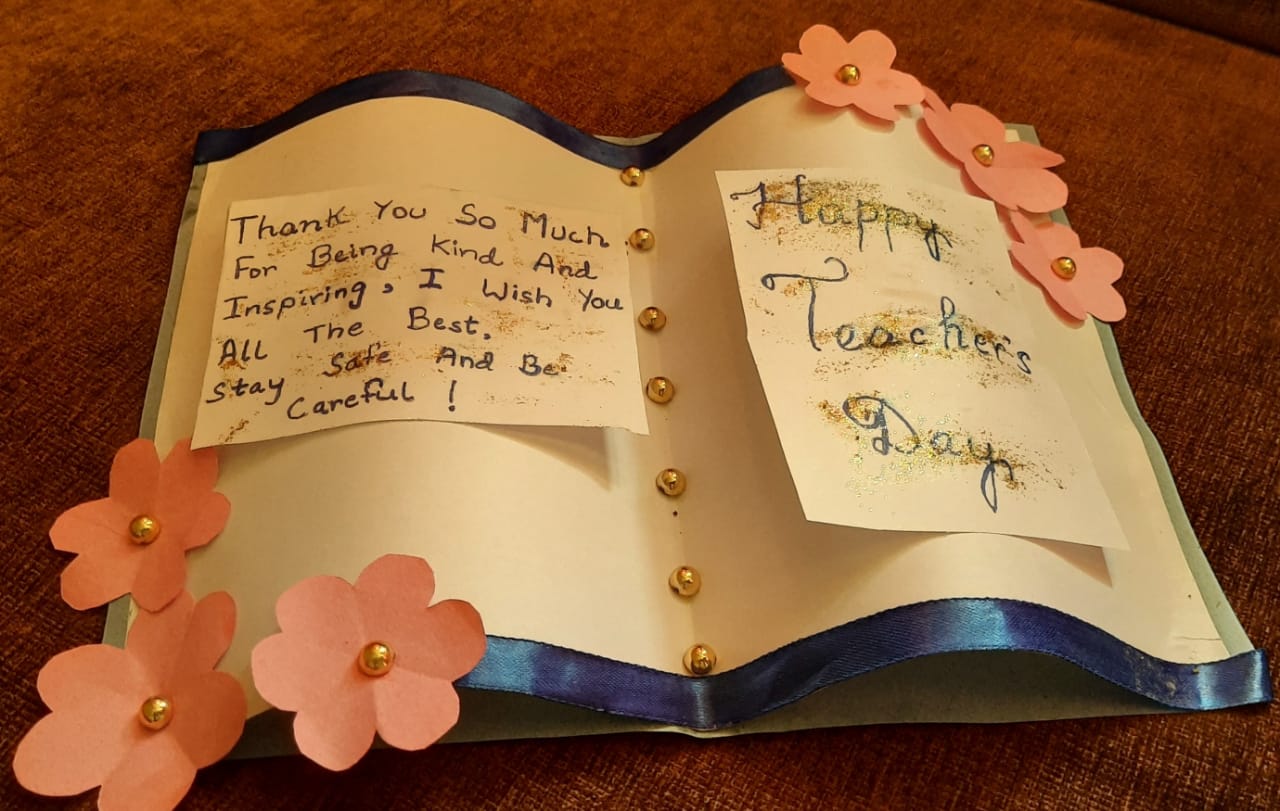 Thank You So Much
For Being Kind And
Inspiring, I Wish You
All The Best,
Stay Safe And Be
Careful !
Happy
Teacher's
Day